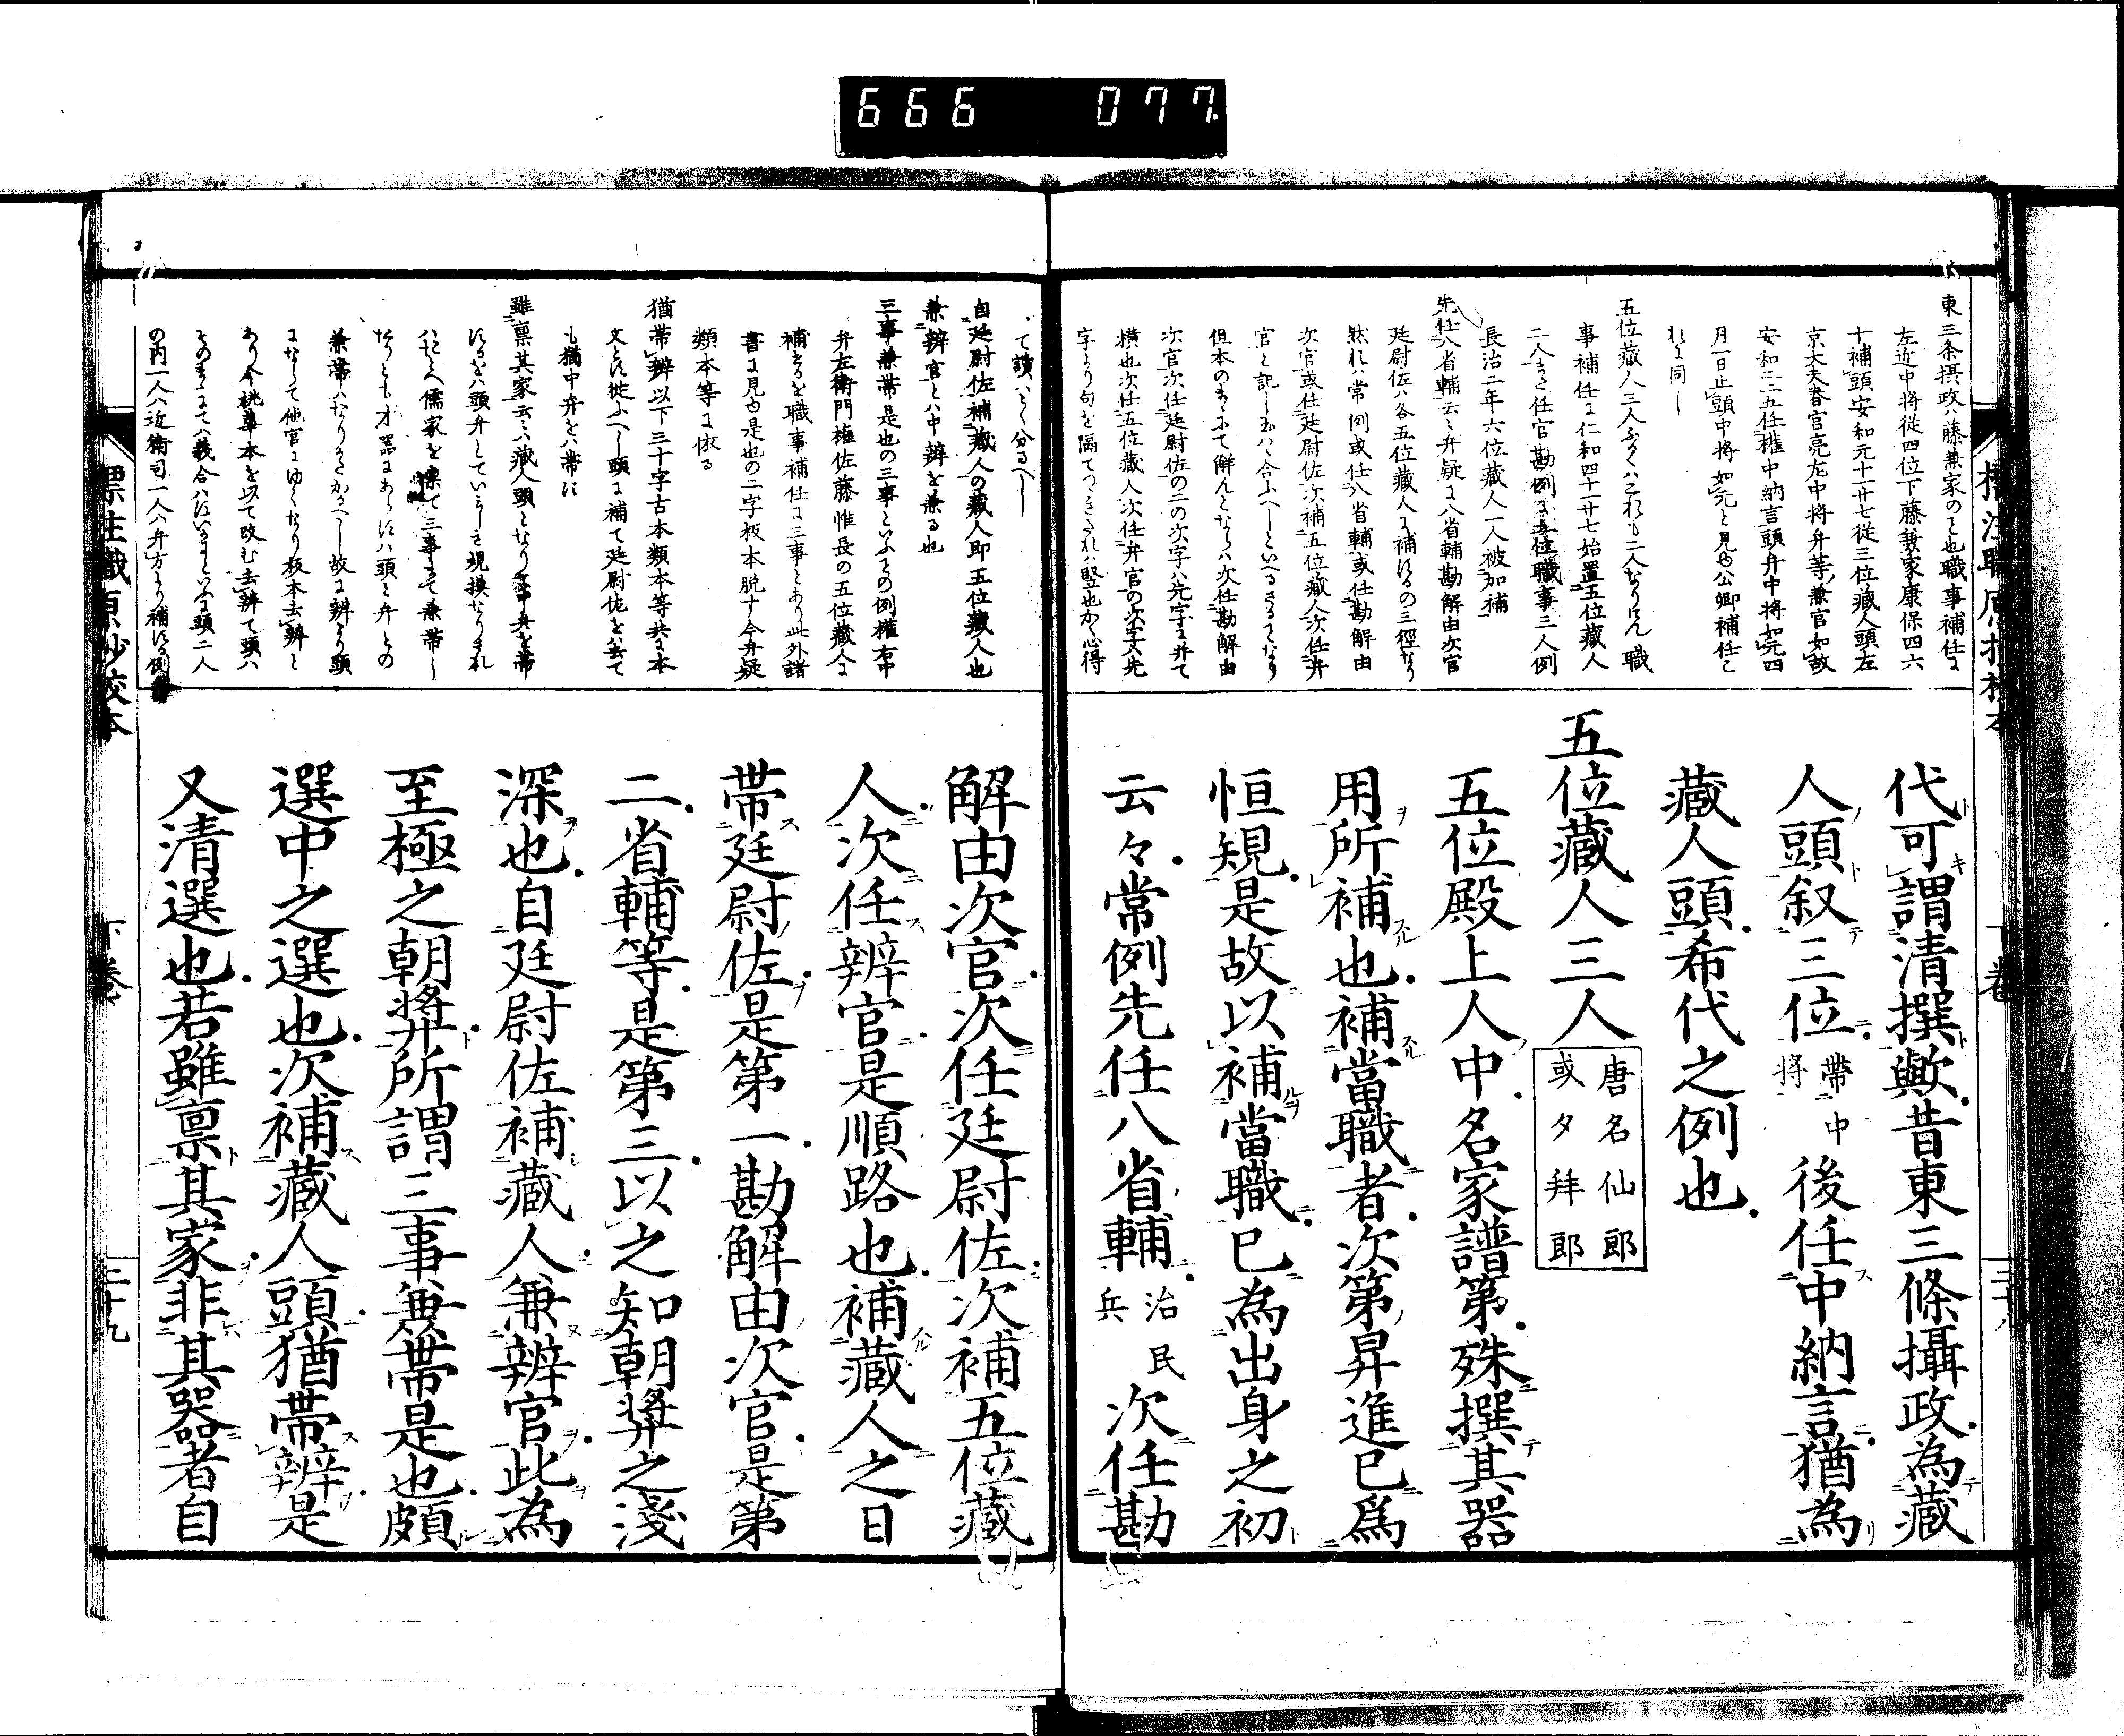 666 077
東三条摂政ハ藤兼家のこと也職事補任に
左近中将従四位下藤兼家康保四六
十補頭安和元十一廿七従三位蔵人頭左
京大夫春宮亮左中将弁等兼官如故
安和二二五任権中納言頭弁中将如元四
月一日止頭中将如元と見ゆ公卿補任こ
れに同し
五位蔵人三人ふるくハこれも二人なりけん職
事補任に仁和四十一廿七始置五位蔵人
二人また任官勘例に五位職事三人例
長治二年六位蔵人一人被加補
先任八省輔云々弁疑に八省輔勘解由次官
廷尉佐ハ各五位蔵人に補するの三径なり
然れハ常例或任八省輔或任勘解由
次官或任廷尉佐次補五位蔵人次任弁
官と記し玉ハヽ合ふへしといへるさることなり
但本のまゝにて解んとならハ次任勘解由
次官次任廷尉佐の二の次字ハ先字に并て
横也次任五位蔵人次任弁官の次字ハ先
字より句を隔てつきたれハ竪也かく心得
代可謂清撰歟昔東三條攝政為藏
人頭叙三位帶中将後任中納言猶為
藏人頭希代之例也
五位藏人三人唐名仙郎或夕拜郎
五位殿上人中名家譜第殊撰其器
用所補也補當職者次第昇進已爲
恒規是故以補當職已為出身之初
云々常例先任八省輔治民兵次任勘
て讀ハよく分るへし
自廷尉佐補蔵人の蔵人即五位蔵人也
兼辨官とハ中辨を兼る也
三事兼帯是也の三事といふその例権右中
弁左衛門権佐藤惟長の五位蔵人に
補するを職事補任に三事とあり此外諸
書に見ゆ是也の二字板本脱す今弁疑
類本等に依る
猶帯辨以下三十字古本類本等共に本
文とす従ふへし頭に補て廷尉佐をハ去て
も猶中弁をハ帯に
雖禀其家云々ハ蔵人頭となり中弁を帯
するをハ頭弁とていミしき規摸なりされ
ハたとへ儒家を禀て三事まて兼帯し
たりとも才器にあらすハ頭と弁との
兼帯ハなりかたかるへし故に辨より頭
になして他官にゆくなり板本去辨と
あり今桃華本を以て改む去辨て頭ハ
そのまゝにてハ義合ハすいかにといふに頭二人
の内一人ハ近衛司一人ハ弁方より補する例
解由次官次任廷尉佐次補五位藏
人次任辨官是順路也補藏人之日
帶廷尉佐是第一勘解由次官是第
二省輔等是第三以之知朝奬之淺
深也自廷尉佐補藏人兼辨官此為
至極之朝奬所謂三事兼帶是也頗
選中之選也次補藏人頭猶帶辨是
又清選也若雖禀其家非其器者自
標注職原抄校本 下巻 三十九